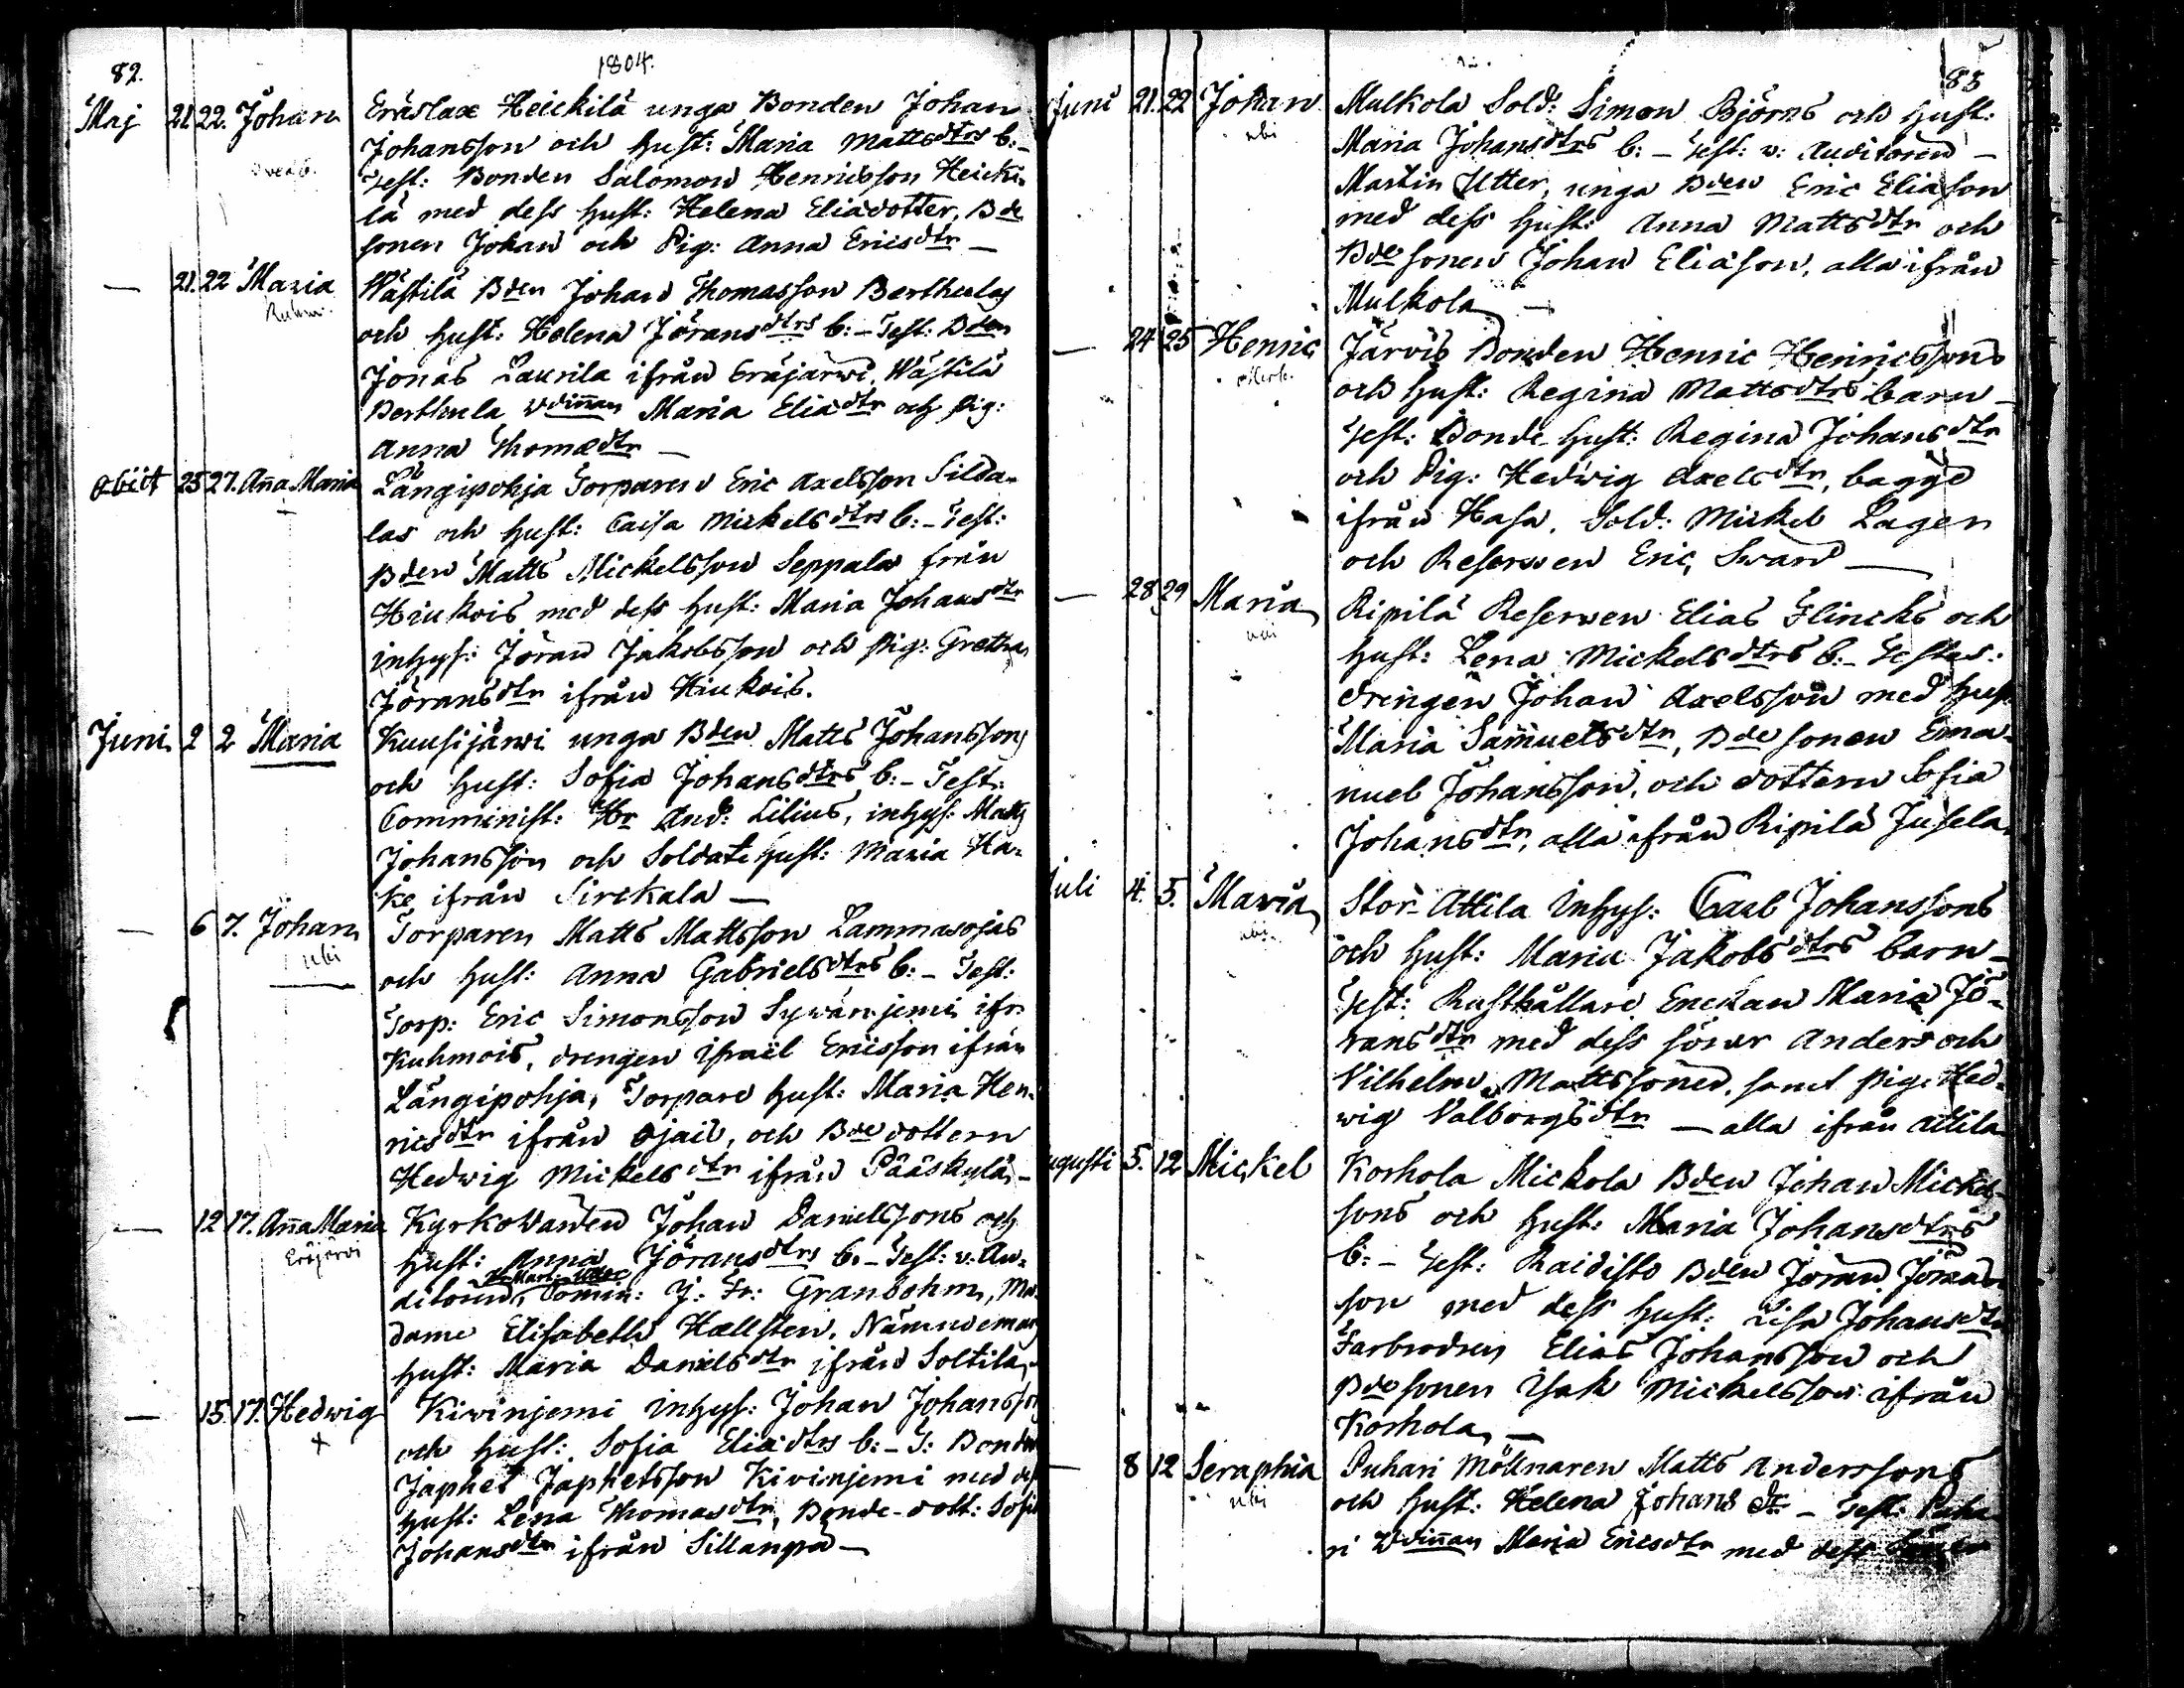 82.
1804.
Maj 21 22. Johan Eräslax Heickilä unga Bonden Johan
Johansson och hust: Maria Mattsdtrs b:-
Test: Bonden Salomon Henricsson Heicki-
lä med dess hust: Helena Eliædotter, Bde
sonen Johan och Pig: Anna Ericsdtr —
— 21. 22 Maria Wästilä Bden Johan Thomasson Berthulas
Kuhm.
och hust: Helena Jöransdtrs b: - Test: Bden
Jonas Laurila ifrån Eräjärwi, Wästilä
Berthula Wdinnan Maria Eliædtr och pig:
Anna Thomædtr —
obiit 25 27. Aña Maria Långipohja Torparen Eric Axelsson Silda-
las och hust: Caisa Mickelsdtrs b: - Test:
Bden Matts Mickelsson Seppala från
Hiukois med dess hust: Maria Johansdtr
inhys: Jöran Jakobsson och pig: Gretha
Jöransdtr ifrån Hiukois.
Juni 2 2 Maria Kuusijärwi unga Bden Matts Johanssons
och hust: Sofia Johansdtrs b: - Test:
Comminist: Hr And: Lilius, inhys: Matts
Johansson och Soldate hust: Maria Ha-
ke ifrån Sirckala —
— 6 7. Johan Torparen Matts Mattsson Lammasojas
ubi
och hust: Anna Gabrielsdtrs b: - Test:
Torp: Eric Simonsson Sywänjemi ifr:
Kuhmois, drengen Israël Ericsson ifrån
Långipohja, Torpare hust: Maria Hen-
ricsdtr ifrån Ojais, och Bde dottern
Hedwig Mickelsdtr ifrån Pääskylä —
— 12 17. Aña Maria Kyrkowärden Johan Danielssons och
Eräjärvi
hust: Anna Jöransdtrs b. - Test: v: Au-
Hr Mart: Utter
ditoren, Comin: J. Fr: Granbohm, Ma-
dame Elisabeth Hællsten, Nämndeman
hust: Maria Danielsdtr ifrån Soltila,
— 15 17. Hedwig Kivinjemi inhys: Johan Johansson
och hust: Sofia Eliædtrs b: - T: Bonden
Japhet Japhetsson Kivinjemi med dess
hust: Lena Thomasdtr, Bonde-dott: Sofia
Johansdtr ifrån Sillanpä —
83
Juni 21. 22 Johan Mulkola Sold: Simon Björns och hust:
ubi
Maria Johansdtrs b: - Test: v: Auditoren —
Martin Utter, unga Bden Eric Eliasson
med dess hust: Anna Mattsdtr och
Bde sonen Johan Eliason, alla ifrån
Mulkola —
— 24 25 Henric Järvis Bonden Henric Henricssons
och hust: Regina Mattsdtrs barn —
Test: Bonde hust: Regina Johansdtr
och Pig: Hedwig Axelsdtr, bægge
ifrån Hasa, Sold: Mickel Lager
och Reserwen Eric Sward —
— 28 29 Maria Ripilä Reserwen Elias Flincks och
ubi
hust: Lena Mickelsdtrs b: - Testes:
drengen Johan Axelsson med hust
Maria Samuelsdtr, Bde sonen Ema-
nuel Johansson, och dottern Sofia
Johansdtr, alla ifrån Ripilä Jusela.
Juli 4. 5. Maria Stor-Attila inhys: Carl Johanssons
ubi
och hust: Maria Jakobsdtrs barn —
Test: Rusthållare Enckan Maria Jö-
ransdtr med dess söner Anders och
Vilhelm Mattssöner, samt pig: Hed-
wig Valborgsdtr — alla ifrån Attila
Augusti 5. 12 Mickel Korhola Mickola Bden Johan Mickels-
sons och hust: Maria Johansdtrs
b: - Test: Raidisto Bden Jöran Jöran-
son med dess hust: Lisa Johansdtr
Farbrodren Elias Johansson och
Bde sonen Isak Mickelsson ifrån
Korhola, —
— 8 12 Seraphia Puhari Möllnaren Matts Anderssons
ubi
och hust: Helena Johansdtr - Test: Puha-
ri Wdinnan Maria Ericsdtr med dess